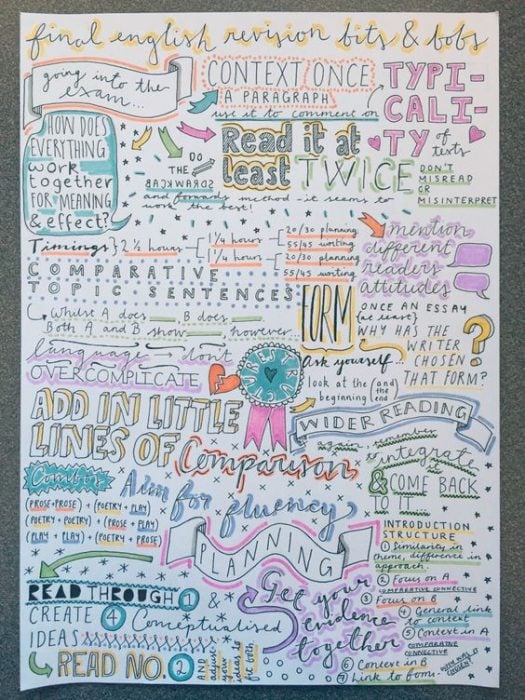 final english revision bits & bobs
going into the
exam...
CONTEXT ONCE
A PARAGRAPH
use it to comment on
TYPI-
CALI-
TY of
texts
HOW DOES
EVERYTHING
work
together
FOR MEANING
& effect?
Read it at
least TWICE
DON'T
MISREAD
OR
MISINTERPRET
DO
THE
BACKWARDS
and forwards method - it seems to
work the best!
Timings } 2 1/2 hours
1 1/4 hours
20/30 planning
55/45 writing
1 1/4 hours
20/30 planning
55/45 writing
mention
different
readers
attitudes
COMPARATIVE
TOPIC SENTENCES:
Whilst A does ___ B does ___
Both A and B show ___, however
FORM
ONCE AN ESSAY
(at least)
WHY HAS THE
WRITER
CHOSEN
THAT FORM?
?
ask yourself...
look at the (and the)
beginning end
language - don't
OVERCOMPLICATE
STRUCTURE
WIDER READING
ADD IN LITTLE
LINES OF Comparison
again, remember
to integrate
it
& COME BACK
TO IT
Combos
(PROSE + PROSE) + (POETRY + PLAY)
(POETRY + POETRY) + (PROSE + PLAY)
(PLAY + PLAY) + (POETRY + PROSE)
Aim for fluency
PLANNING
INTRODUCTION
STRUCTURE
① Similarity in
theme, difference in
approach.
② Focus on A
COMPARATIVE CONNECTIVE
③ Focus on B
④ General link
to context
⑤ Context in A
COMPARATIVE
CONNECTIVE
⑥ Context in B
⑦ Link to form
READ THROUGH ① &
CREATE ④ Conceptualised
IDEAS
READ NO. ②
AND
adjust
your
ideas to
fit both
Get your
evidence
together